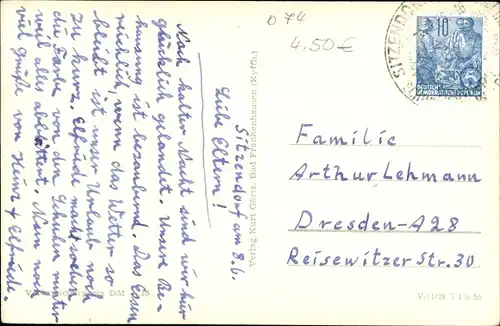 O 74
4.50 €
SITZENDORF
10
DEUTSCHE
DEMOKRATISCHE REPUBLIK
Sitzendorf am 8.6.
Liebe Eltern!
Nach kalter Nacht sind wir hier
glücklich gelandet. Unsere Be-
hausung ist bezaubernd. Das Essen
reichlich, wenn das Wetter so
bleibt ist unser Urlaub noch
zu kurz. Elfriede macht
die Farbe von den Schuhen munter
weil alles abblättert. Nun noch
viel Grüße von Heinz & Elfriede.
Verlag Kurt Görtz, Bad Frankenhausen (Kyffh.)
Familie
Arthur Lehmann
Dresden-A28
Reisewitzer Str. 30
DM